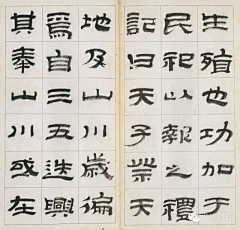 生殖也功加于
民祀以報之禮
記曰天子祭天
地及山川歲徧
焉自三五迭興
其奉山川或在